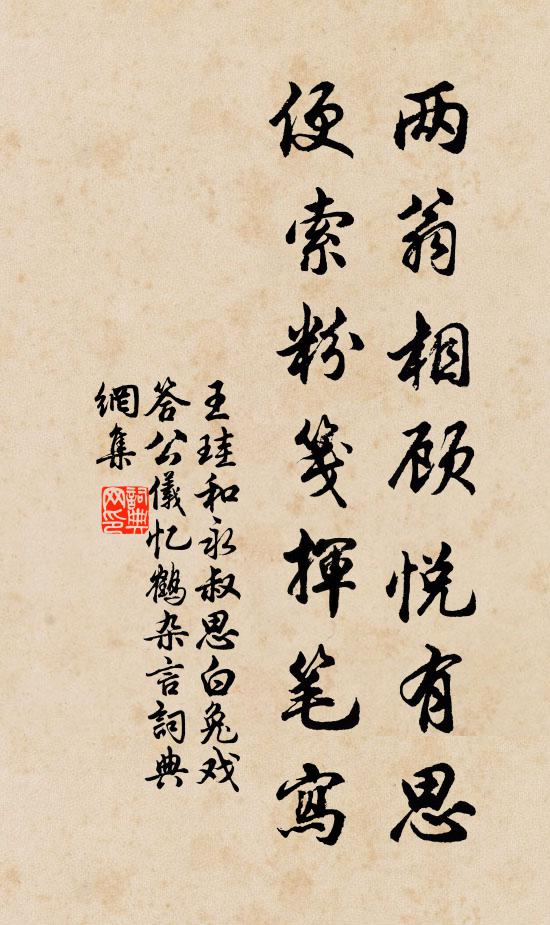 两翁相顾悦有思
便索粉笺揮笔寫
王珪和永叔思白兔戏
答公儀忆鶴杂言詞典
網集
詞典
网印